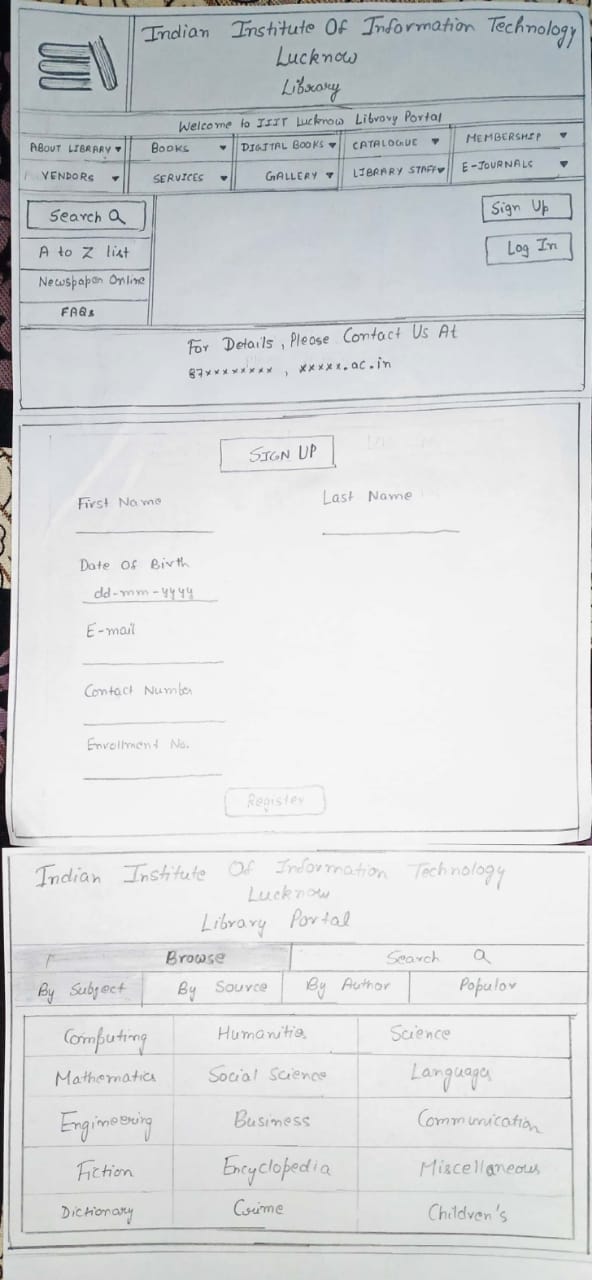 Indian Institute Of Information Technology
Lucknow
Library
Welcome to IIIT Lucknow Library Portal
ABOUT LIBRARY ▾ BOOKS ▾ DIGITAL BOOKS ▾ CATALOGUE ▾ MEMBERSHIP ▾
VENDORS ▾ SERVICES ▾ GALLERY ▾ LIBRARY STAFF ▾ E-JOURNALS ▾
Search
Sign Up
A to Z list
Log In
Newspaper Online
FAQs
For Details, Please Contact Us At
87xxxxxxxx , xxxxx.ac.in
SIGN UP
First Name Last Name
Date Of Birth
dd-mm-yyyy
E-mail
Contact Number
Enrollment No.
Register
Indian Institute Of Information Technology
Lucknow
Library Portal
Browse Search
By Subject By Source By Author Popular
Computing Humanities Science
Mathematics Social Science Languages
Engineering Business Communication
Fiction Encyclopedia Miscellaneous
Dictionary Crime Children's